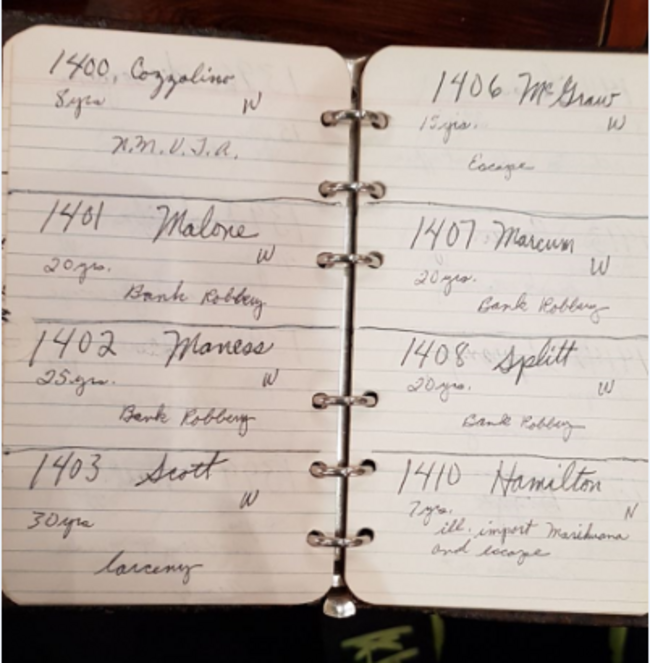 1400, Cozzolino
8 yrs W
N.M.V.T.A.
1401 Malone
20 yrs. W
Bank Robbery
1402 Maness
25 yrs. W
Bank Robbery
1403 Scott
30 yrs W
larceny
1406 McGraw
15 yrs. W
Escape
1407 Marcum
20 yrs. W
Bank Robbery
1408 Splitt
20 yrs. W
Bank Robbery
1410 Hamilton
7 yrs. N
ill. import Marihuana
and escape